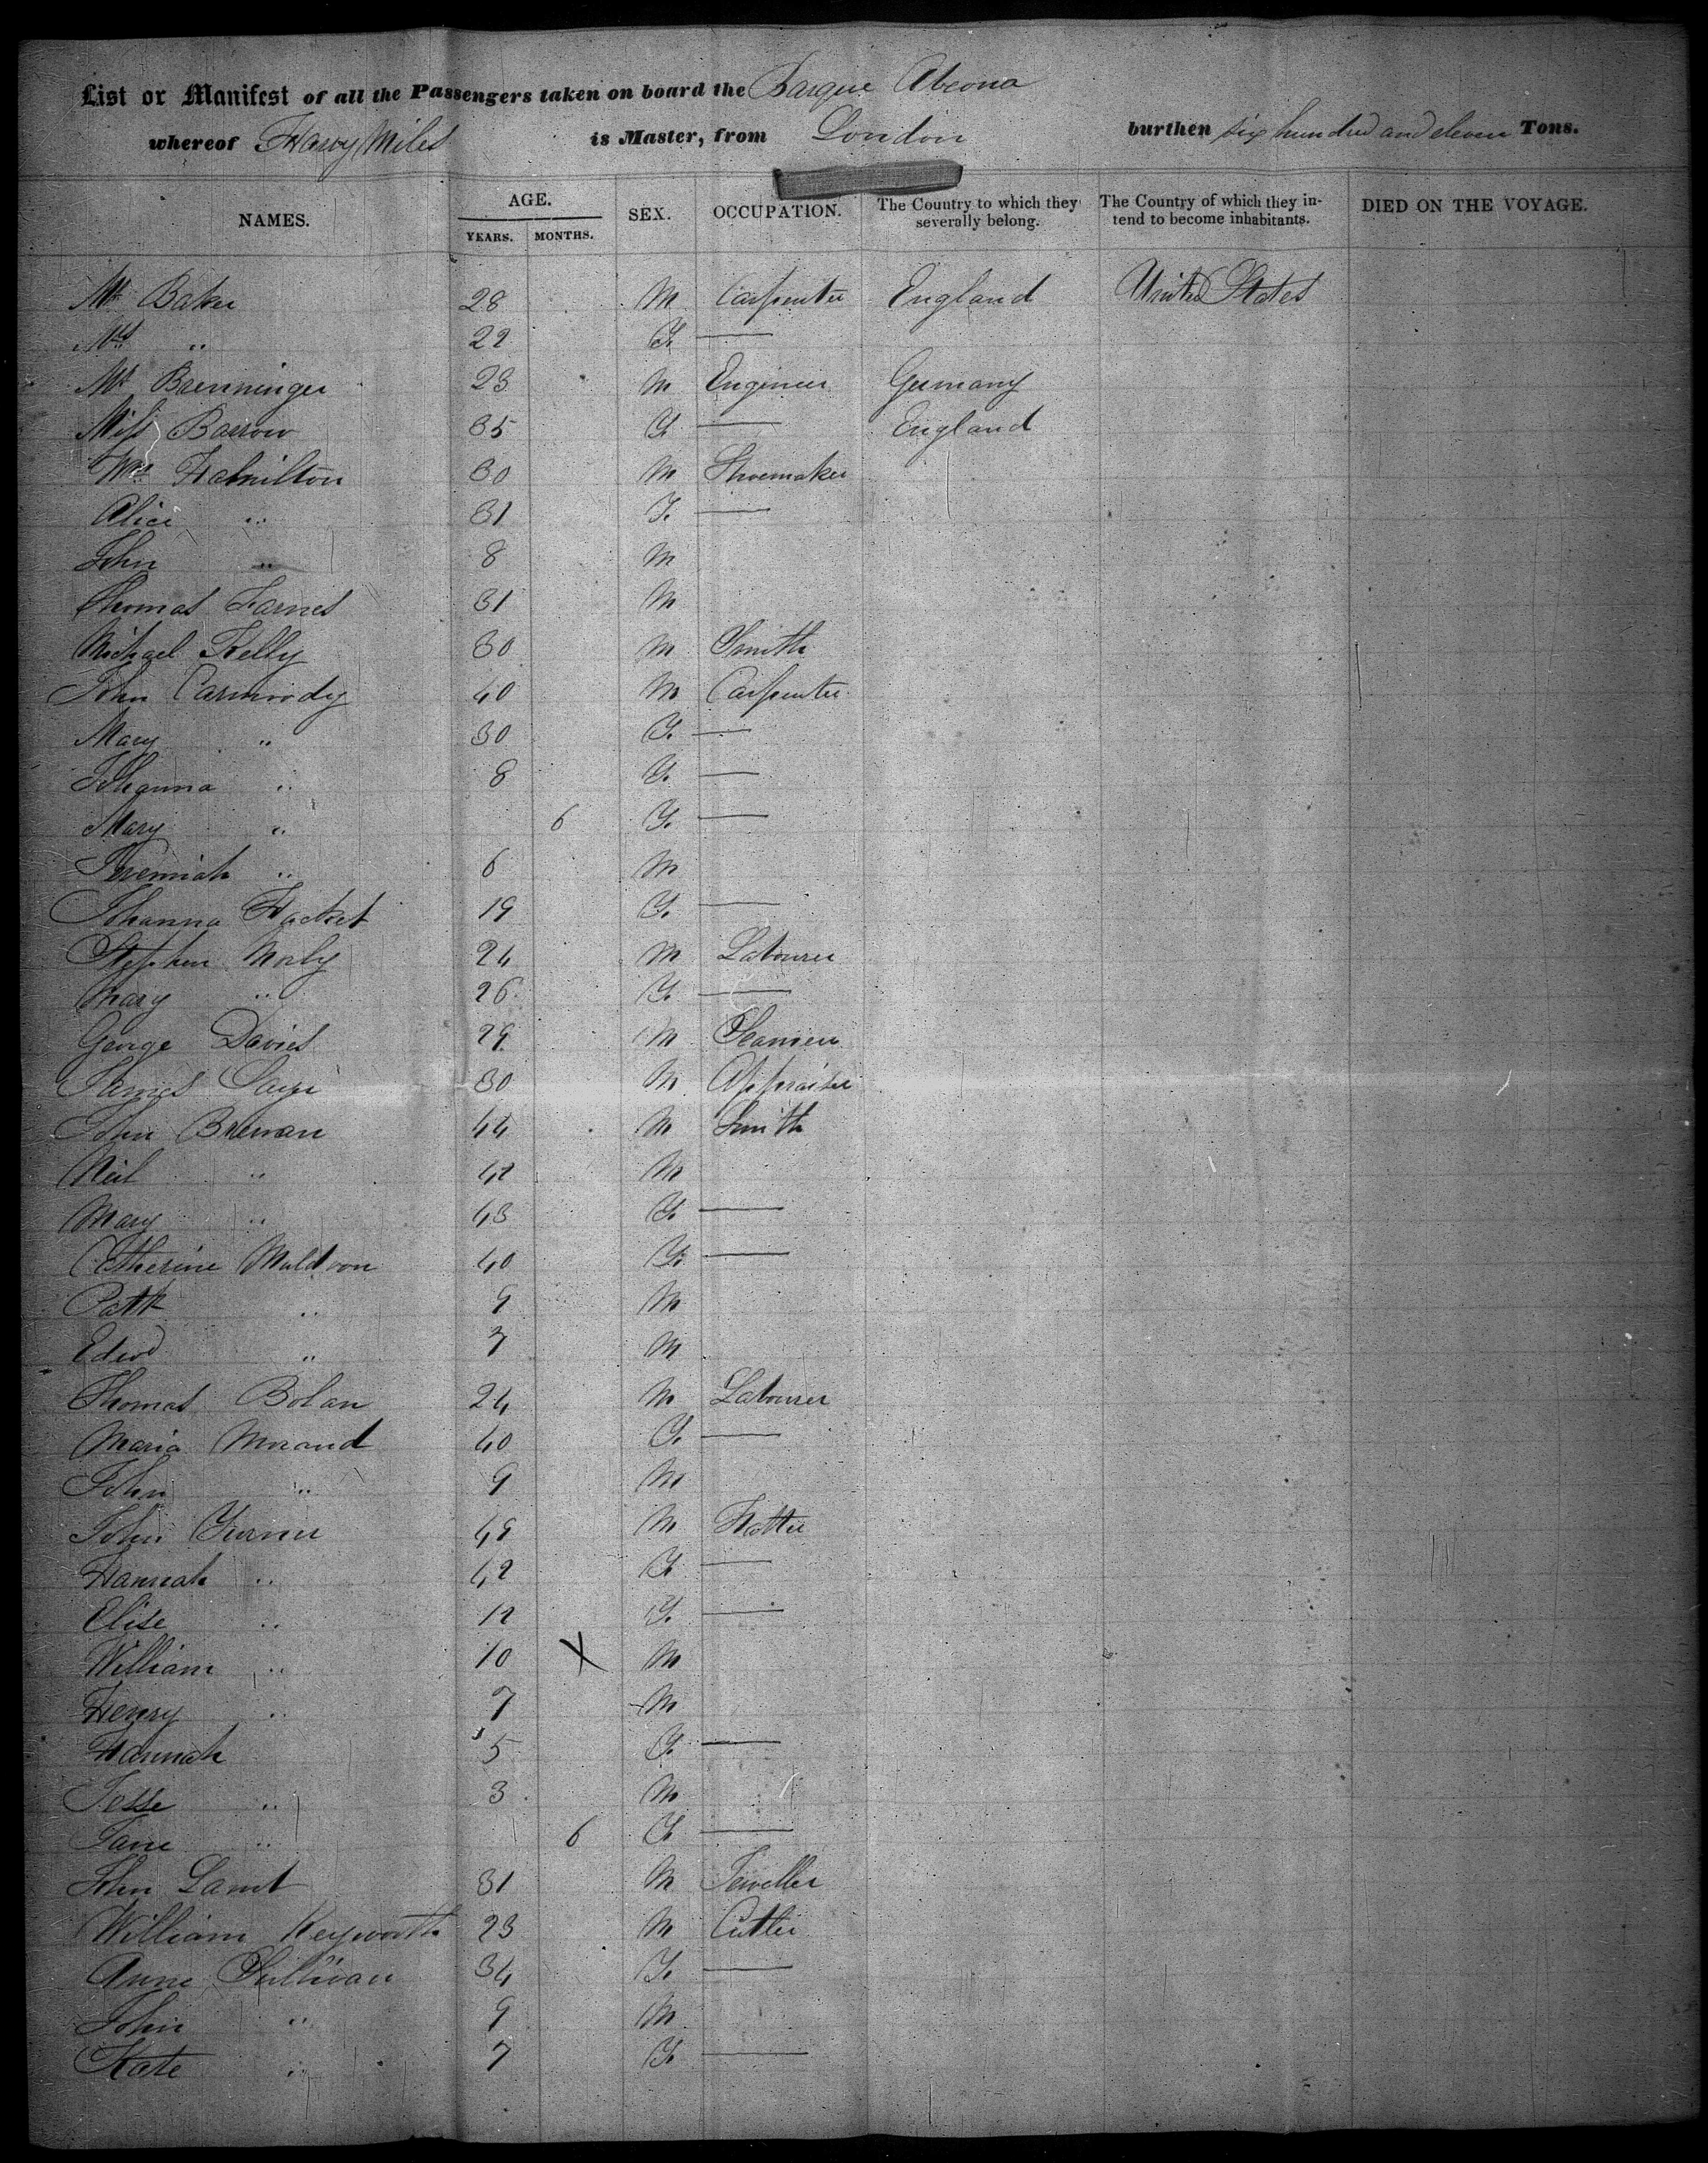 List or Manifest of all the Passengers taken on board the Barque Abeona
whereof Harvy Miles is Master, from London burthen six hundred and eleven Tons.
NAMES. AGE. YEARS. MONTHS. SEX. OCCUPATION. The Country to which they severally belong. The Country of which they intend to become inhabitants. DIED ON THE VOYAGE.
Mr Baker 28 M Carpenter England United States
Mrs " 22 F —
Mr Brenninger 23 M Engineer Germany
Miss Barrow 35 F — England
Wm Hamilton 30 M Shoemaker
Alice " 31 F —
John " 8 M
Thomas 31 M
Michael Kelly 30 M Smith
John Carmody 40 M Carpenter
Mary " 30 F —
Johanna " 8 F —
Mary " 6 F —
Jeremiah " 6 M
Johanna Hacket 19 F —
Stephen Morly 24 M Labourer
Mary " 26 F —
George Davies 29 M
James 30 M Appraiser
John Brennan 44 M Smith
Neil " 42 M
Mary " 43 F —
Catherine Muldoon 40 F —
Patk " 9 M
Edwd " 7 M
Thomas Bolan 24 M Labourer
Maria Morand 40 F —
John " 9 M
John Turner 49 M Hatter
Hannah " 42 F —
Elise " 12 F —
William " 10 X M
Henry " 7 M
Hannah 5 F —
Jesse " 3 M
Jane " 6 F —
John Lamb 31 M Jeweller
William Keyworth 23 M Cutler
Anne Sullivan 34 F —
John " 9 M
Kate " 7 F —